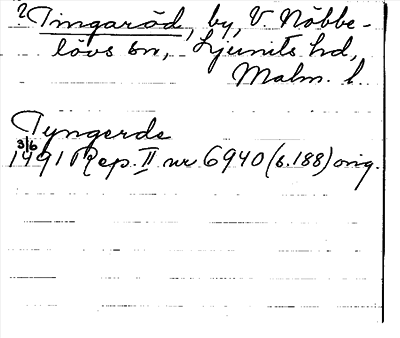 ? Tingaröd, by, V Nöbbe-
lövs sn, Ljunits hd,
Malm. l.
Tyngerde
3/6
1491 Rep. II nr 6940 (s. 188) orig.